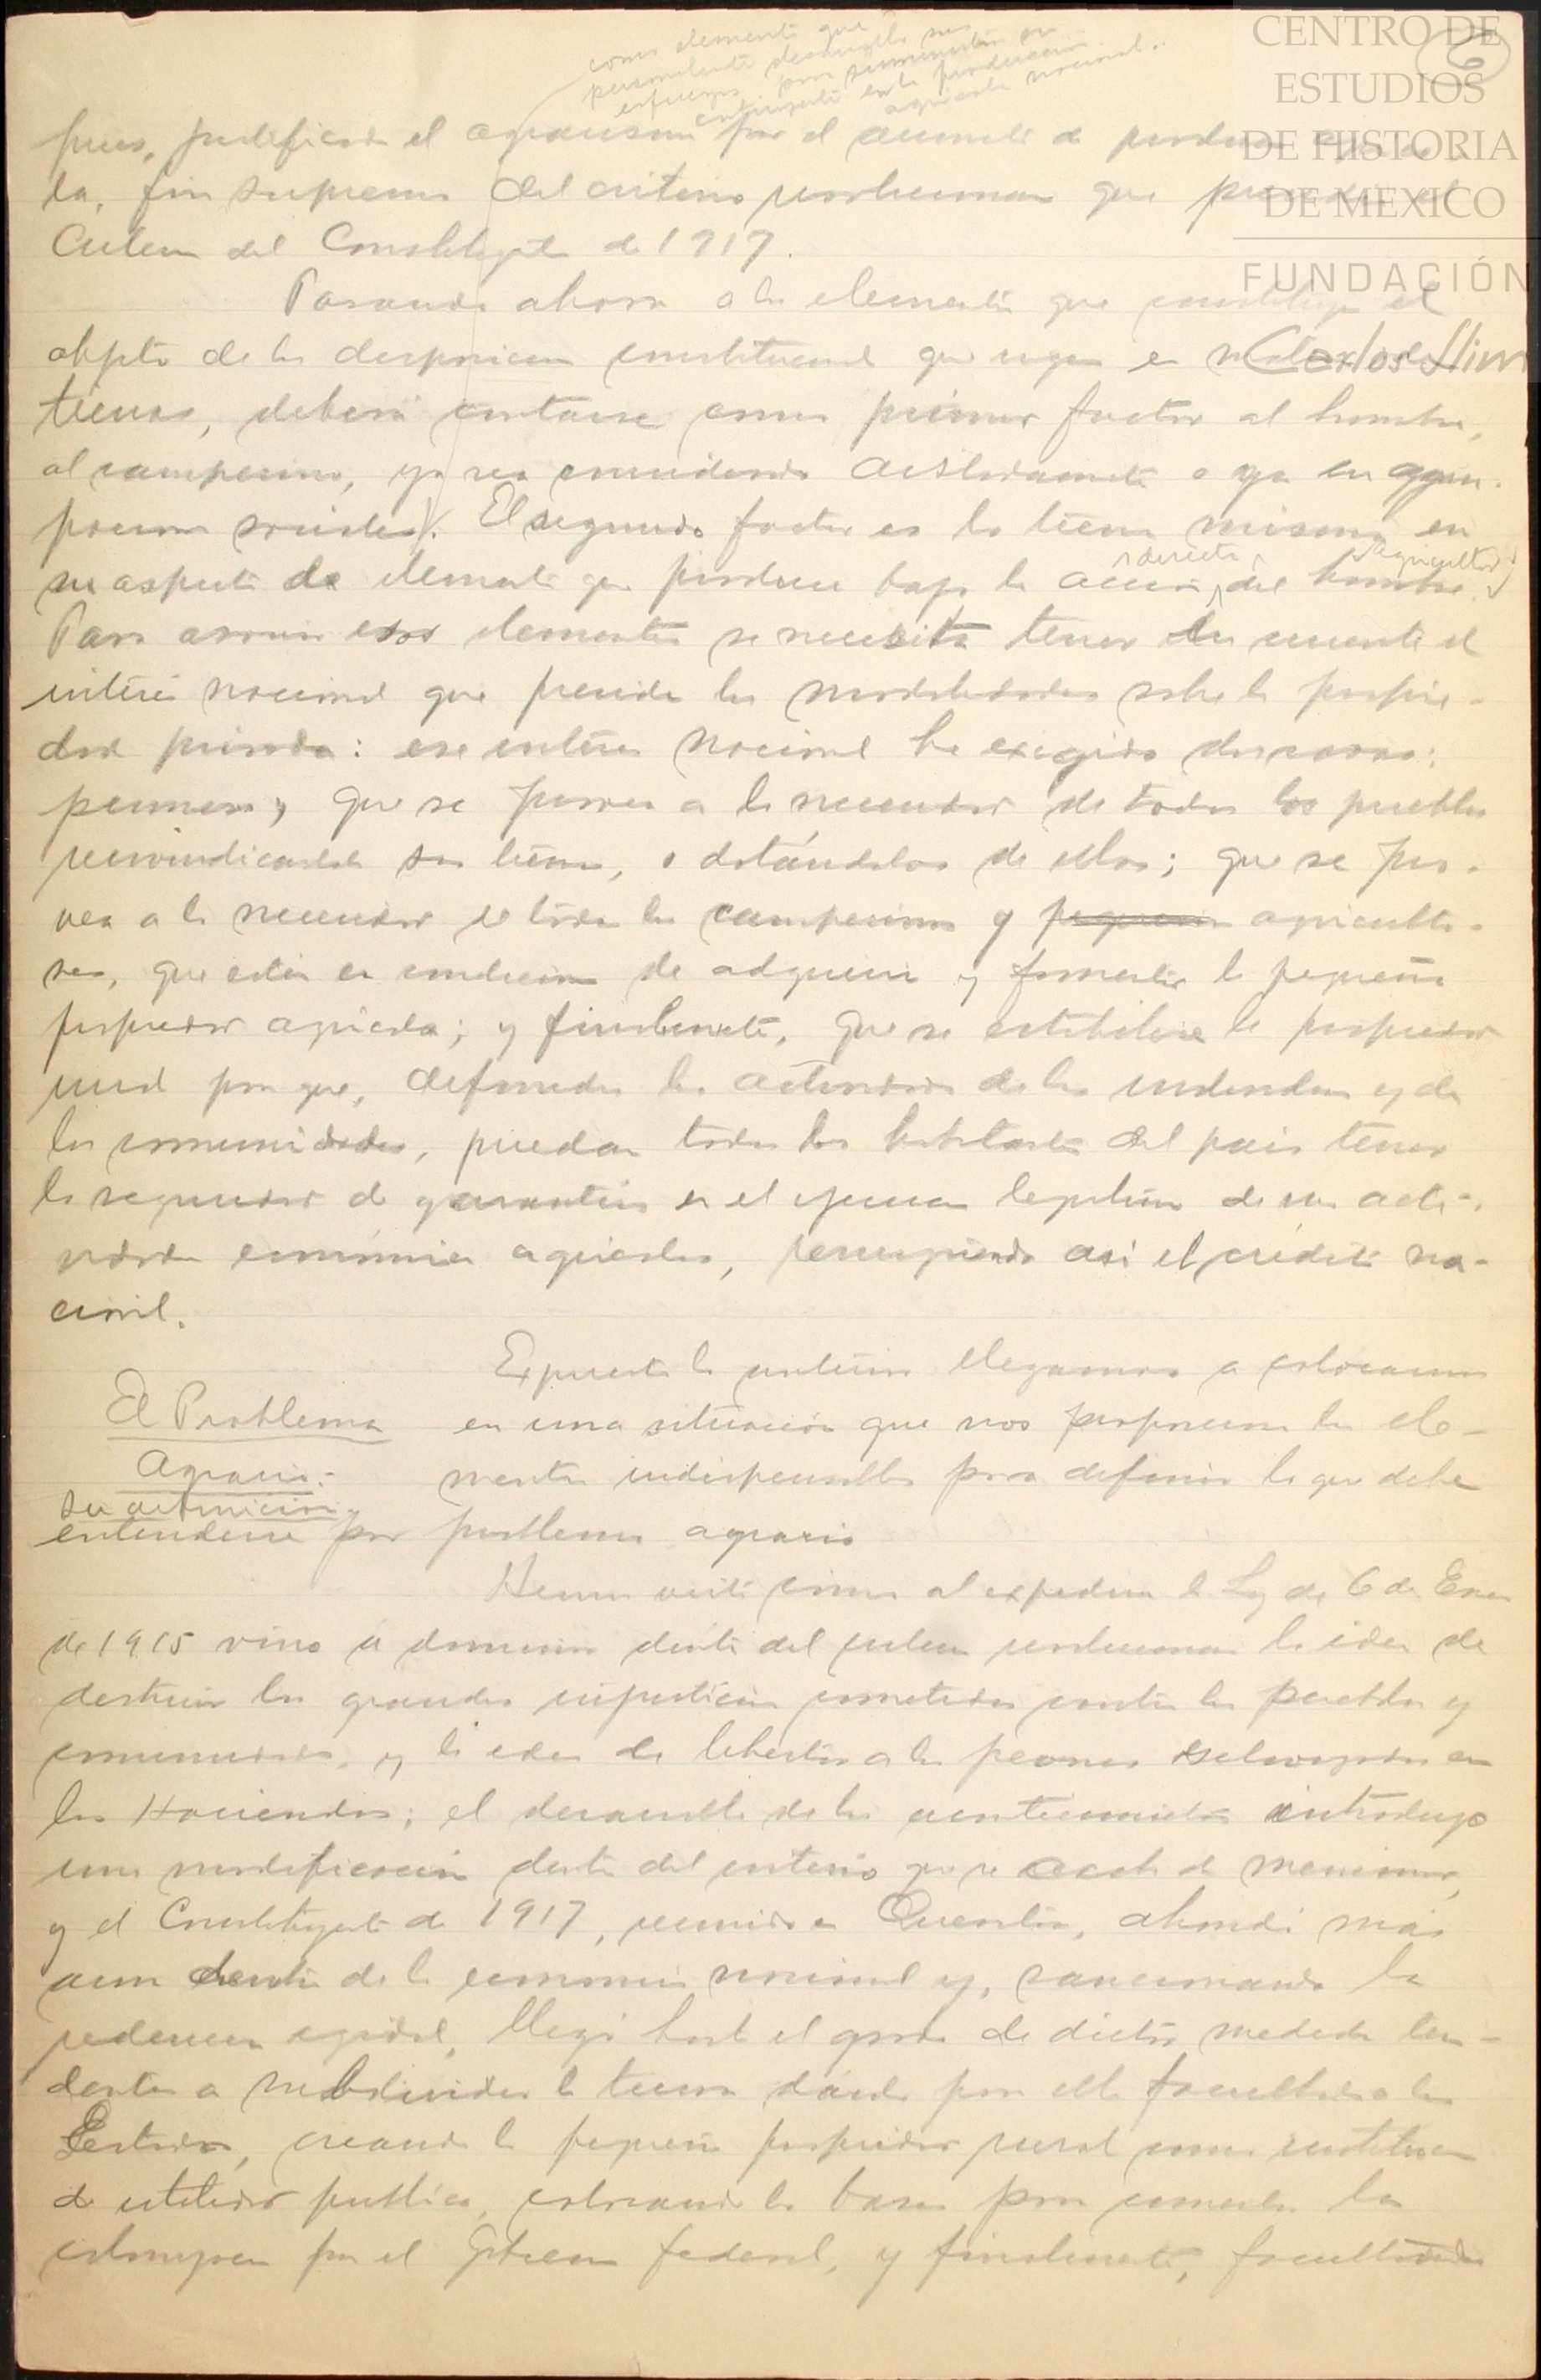 como elemento que
permitiendo desarrolle sus
esfuerzos para suministrar su
contingente en la producción
agrícola nacional.
pues, justificar el agrarismo por el aumento de producción agríco-
la, fin supremo del criterio revolucionario que preside el
Criterio del Constituyente de 1917.
Pasando ahora a los elementos que constituyen el
objeto de las disposiciones constitucionales que rigen en materia de
tierras, deberá contarse como primer factor al hombre,
al campesino, ya sea considerado aisladamente o ya en agru-
paciones sociales. El segundo factor es la tierra misma en
su aspecto de elemento que produce bajo la acción directa del hombre agricultor.
Para asociar esos elementos se necesita tener en cuenta el
interés nacional que preside las modalidades sobre la propie-
dad privada: ese interés nacional ha exigido dos cosas:
primera, que se provea a la necesidad de todos los pueblos
reivindicándoles sus tierras, o dotándolos de ellas; que se pro-
vea a la necesidad de todos los campesinos y pequeños agriculto-
res, que estén en condiciones de adquirir y fomentar la pequeña
propiedad agrícola; y finalmente, que se estabilice la propiedad
rural para que, definidas las actividades de los individuos y de
las comunidades, puedan todos los habitantes del país tener
la seguridad de garantías en el ejercicio legítimo de sus acti-
vidades económicas agrícolas, resurgiendo así el crédito na-
cional.
Expuesto lo anterior llegamos a colocarnos
El Problema
Agrario:
su definición
en una situación que nos proporciona los ele-
mentos indispensables para definir lo que debe
entenderse por problema agrario
Hemos visto cómo al expedirse la Ley de 6 de Enero
de 1915 vino a dominar dentro del criterio revolucionario la idea de
destruir las grandes injusticias cometidas contra los pueblos y
comunidades, y la idea de libertar a los peones esclavizados en
las Haciendas; el desarrollo de los acontecimientos introdujo
una modificación dentro del criterio que se acaba de mencionar,
y el Constituyente de 1917, reunido en Querétaro, ahondó más
aun dentro de la economía nacional y, sancionando la
redención ejidal, llegó hasta el grado de dictar medidas ten-
dentes a subdividir la tierra dando para ello facultades a los
Estados, creando la pequeña propiedad rural como institución
de utilidad pública, colocando las bases para fomentar la
colonización por el Gobierno federal, y finalmente, facultando
CENTRO DE
ESTUDIOS
DE HISTORIA
DE MEXICO
FUNDACIÓN
Carlos Slim